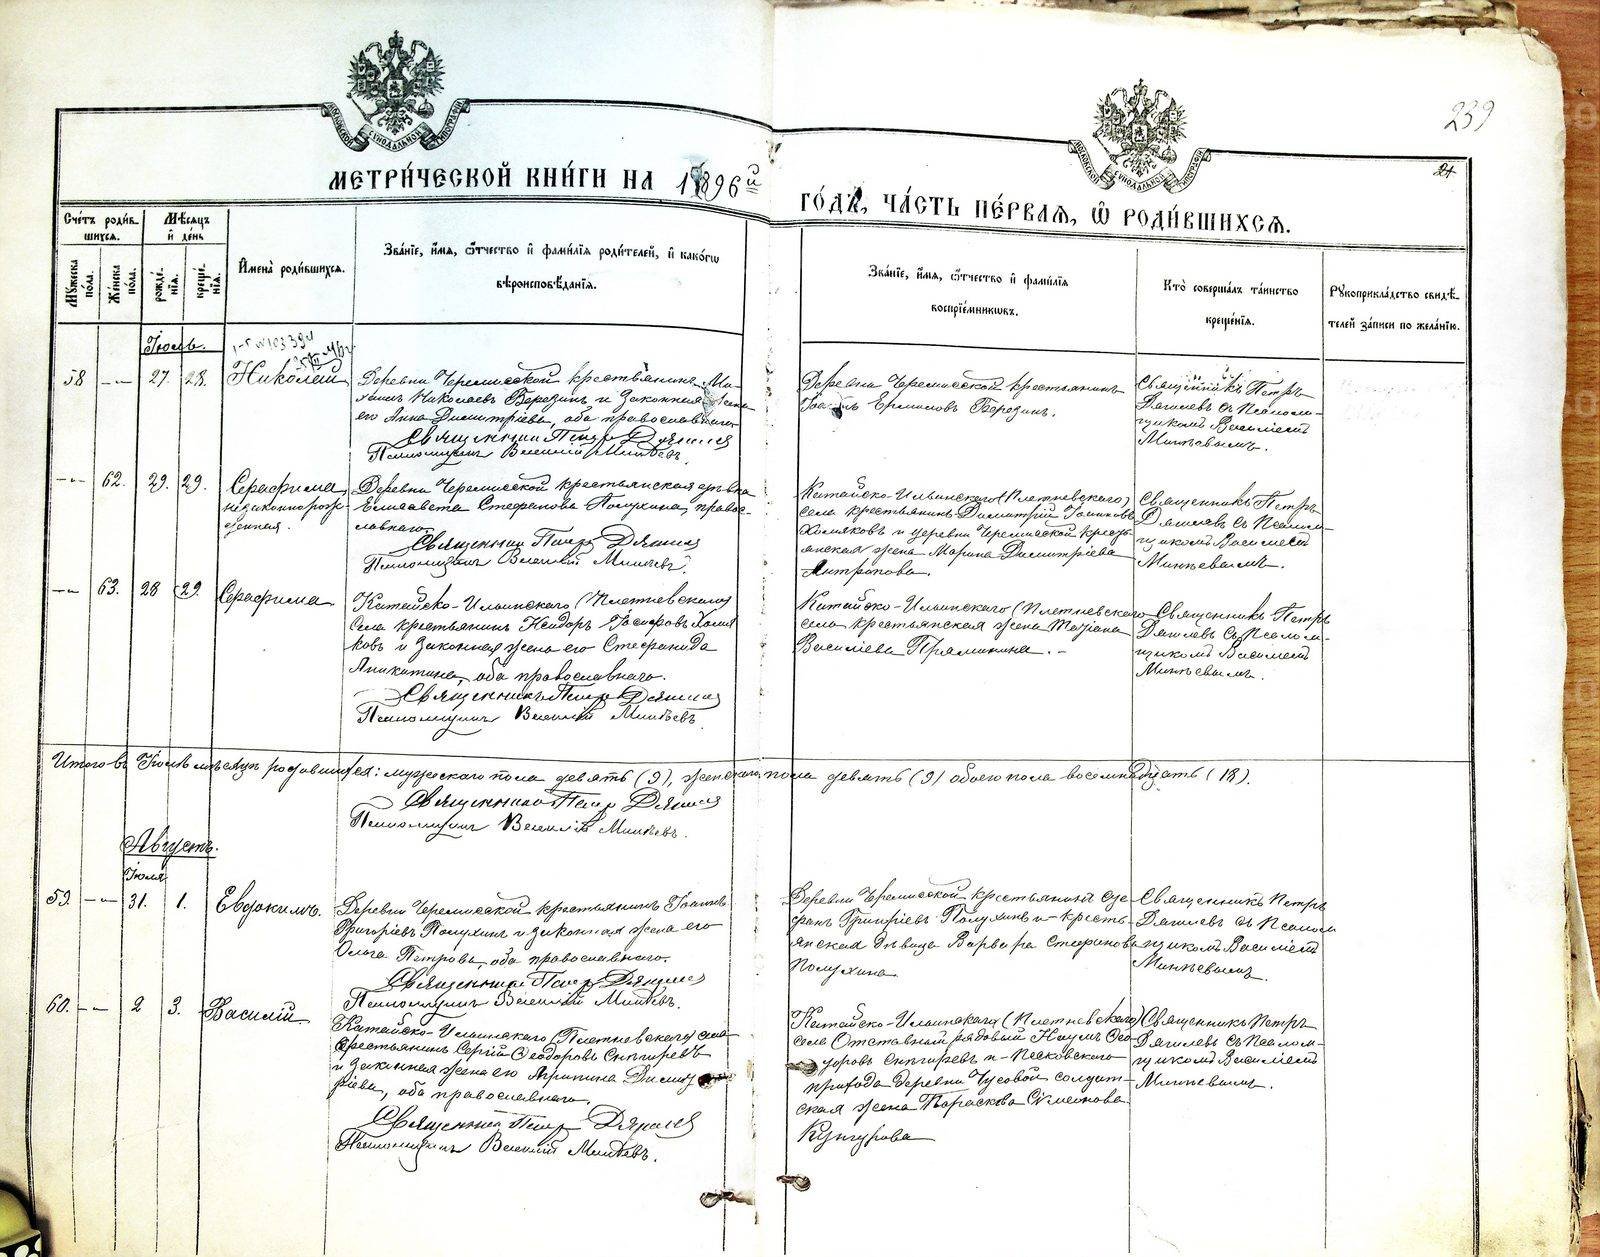 239
МЕТРИ́ЧЕСКОЙ КНИ́ГИ НА 1896й ГО́ДЪ, ЧА́СТЬ ПЕ́РВАЯ, Ѡ РОДИ́ВШИХСЯ.
24
Сче́тъ роди́в
шихся.
Мѣ́сяцъ
и де́нь
Мꙋ́жеска
по́ла.
Же́нска
по́ла.
рожде́
нїя.
креще́
нїя.
И́мена роди́вшихся.
Зва́нїе, и́мя, ѻ́тчество и фами́лїя роди́телей, и како́гѡ
вѣроисповѣ́данїя.
Зва́нїе, и́мя, ѻ́тчество и фами́лїя
воспрїе́мникѡвъ.
Кто̀ соверша́лъ та́инство
креще́нїя.
Рꙋкоприкла́дство свидѣ́
телей за́писи по жела́нїю.
Іюль.
58 -"- 27. 28. Николай
Деревни Черемисской крестьянинъ Ми-
хаилъ Николаевъ Березинъ и законная жена
его Анна Димитріева, оба православнаго.
Священникъ Петръ Дягилевъ
Псаломщикъ Василій Минѣевъ.
Деревни Черемисской крестьянинъ
Ермиловъ Березинъ.
Священникъ Петръ
Дягилевъ съ Псалом-
щикомъ Василіемъ
Минѣевымъ.
-"- 62. 29. 29. Серафима,
незаконнорож-
денная.
Деревни Черемисской крестьянская дѣвка
Елисавета Стефанова Полухина, правос-
лавнаго.
Священникъ Петръ Дягилевъ
Псаломщикъ Василій Минѣевъ.
Китайско-Ильинскаго (Плетневскаго)
села крестьянинъ Димитрій Іоанновъ
Хомяковъ и деревни Черемисской кресть-
янская жена Марина Димитріева
Антропова.
Священникъ Петръ
Дягилевъ съ Псалом-
щикомъ Василіемъ
Минѣевымъ.
-"- 63. 28 29. Серафима
Китайско-Ильинскаго (Плетневскаго)
села крестьянинъ Исидоръ Іосифовъ Хомя
ковъ и законная жена его Стефанида
Аникитина, оба православнаго.
Священникъ Петръ Дягилевъ
Псаломщикъ Василій Минѣевъ.
Китайско-Ильинскаго (Плетневскаго
села крестьянская жена Татіана
Василіева Прямикина.
Священникъ Петръ
Дягилевъ съ Псалом-
щикомъ Василіемъ
Минѣевымъ.
Итого въ Іюлѣ мѣсяцѣ родившихся: мужескаго пола девять (9), женскаго пола девять (9) обоего пола восемнадцать (18).
Священникъ Петръ Дягилевъ
Псаломщикъ Василій Минѣевъ.
Августъ.
Іюля
59. -"- 31. 1. Евдокимъ.
Деревни Черемисской крестьянинъ Іоаннъ
Григоріевъ Полухинъ и законная жена его
Ольга Петрова, оба православнаго.
Священникъ Петръ Дягилевъ
Псаломщикъ Василій Минѣевъ.
Деревни Черемисской крестьянинъ Сте-
фанъ Григоріевъ Полухинъ и кресть-
янская дѣвица Варвара Стефанова
Полухина
Священникъ Петръ
Дягилевъ съ Псалом
щикомъ Василіемъ
Минѣевымъ.
60. -"- 2 3. Василій.
Китайско-Ильинскаго (Плетневскаго) села
крестьянинъ Сергій Ѳеодоровъ Снѣгиревъ
и законная жена его Агрипина Димит
ріева, оба православнаго.
Священникъ Петръ Дягилевъ
Псаломщикъ Василій Минѣевъ.
Китайско-Ильинскаго (Плетневскаго)
села Отставный рядовый Наумъ Ѳео
доровъ Снѣгиревъ и Песковскаго
прихода деревни Чусовой солдат-
ская жена Параскева Симеонова
Кунгурова
Священникъ Петръ
Дягилевъ съ Псалом-
щикомъ Василіемъ
Минѣевымъ.